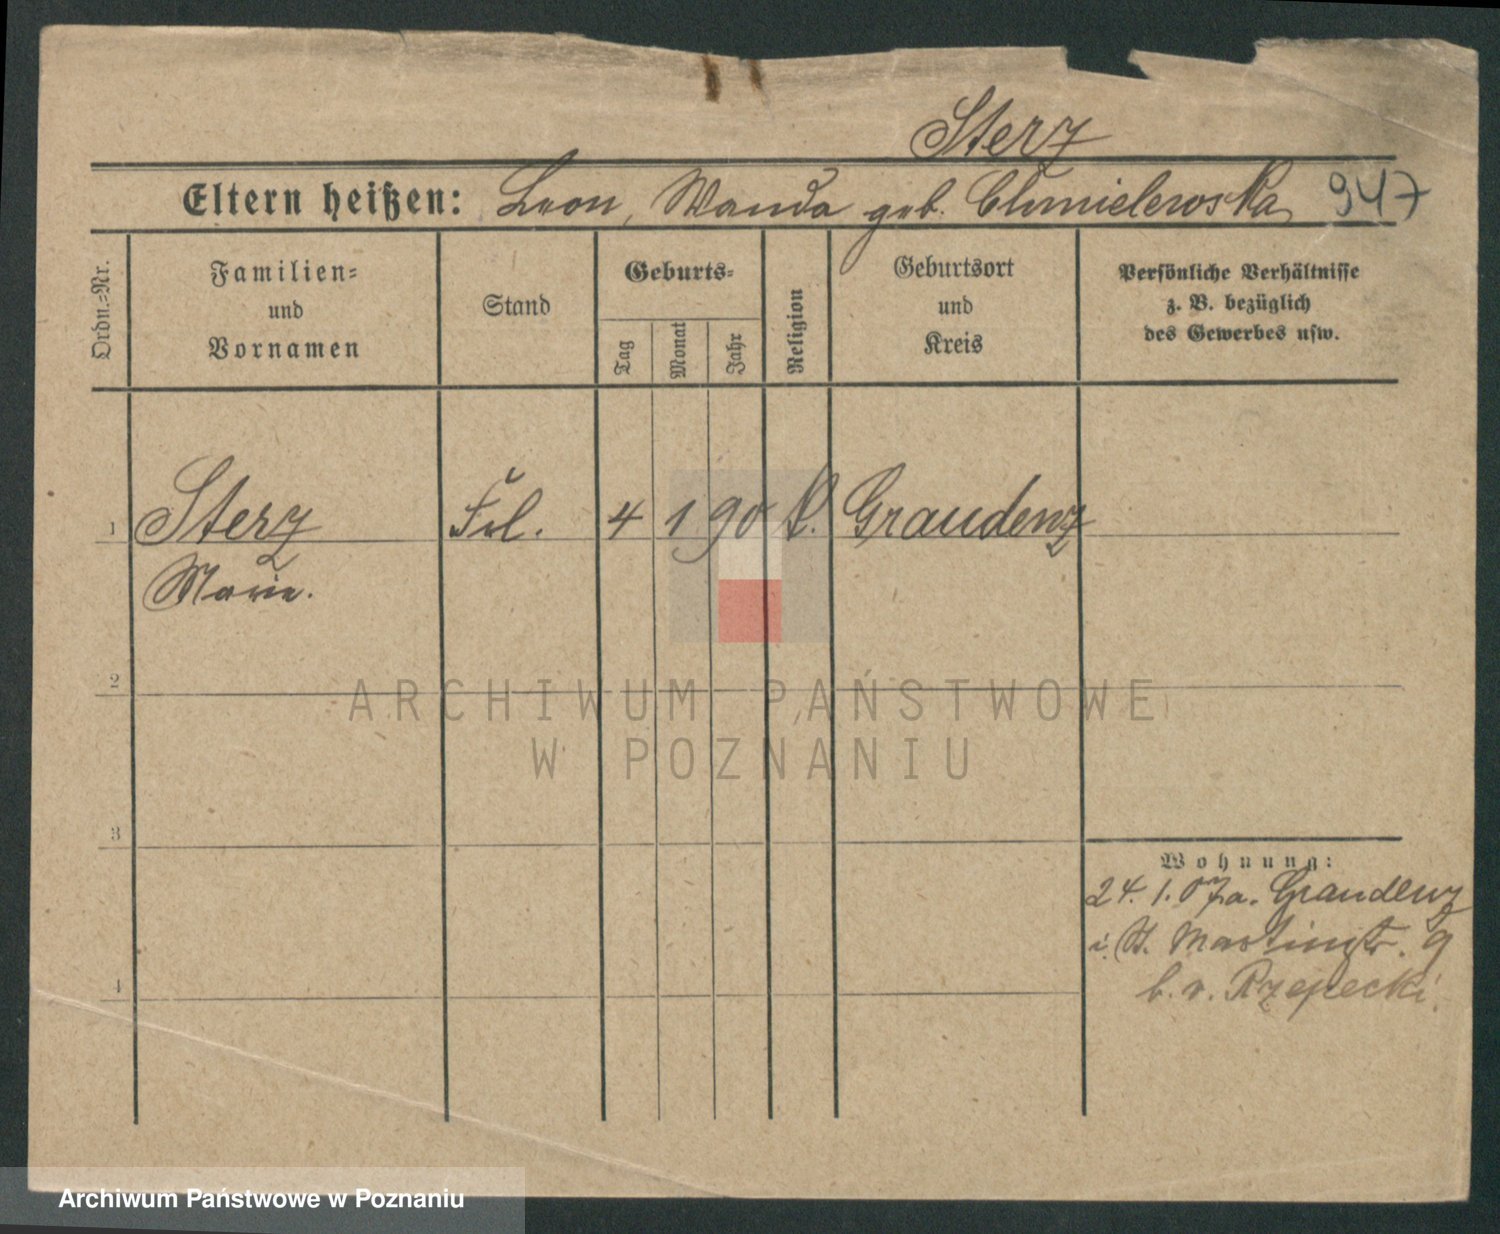 Sterz
Eltern heißen: Leon, Wanda geb. Chmielewska 947
Ordn.-Nr.
Familien-
und
Vornamen
Stand
Geburts-
Tag
Monat
Jahr
Religion
Geburtsort
und
Kreis
Persönliche Verhältnisse
z. B. bezüglich
des Gewerbes usw.
1 Sterz Frl. 4 1 90 k. Graudenz
Marie.
2
ARCHIWUM PAŃSTWOWE
W POZNANIU
3
Wohnung:
24. 1. 07 a. Graudenz
i. St. Martinstr. 9
b. v. Rzepecki.
4
Archiwum Państwowe w Poznaniu